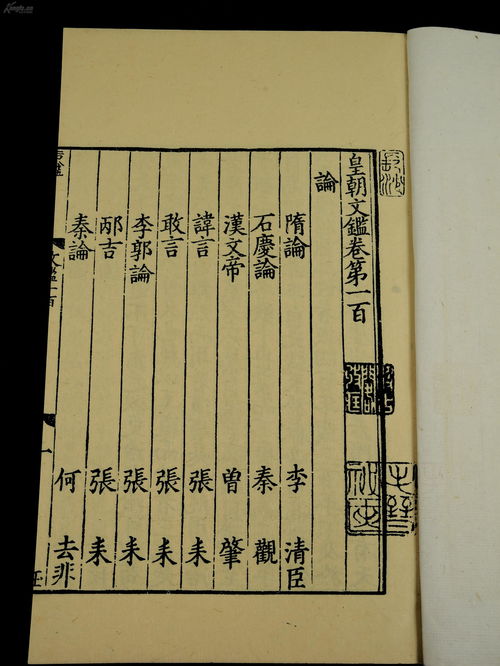 皇朝文鑑卷第一百
論
隋論 李清臣
石慶論 秦觀
漢文帝 曾肇
諱言 張耒
敢言 張耒
李郭論 張耒
邴吉 張耒
秦論 何去非
文鑑一百
一
Kongfz.cn